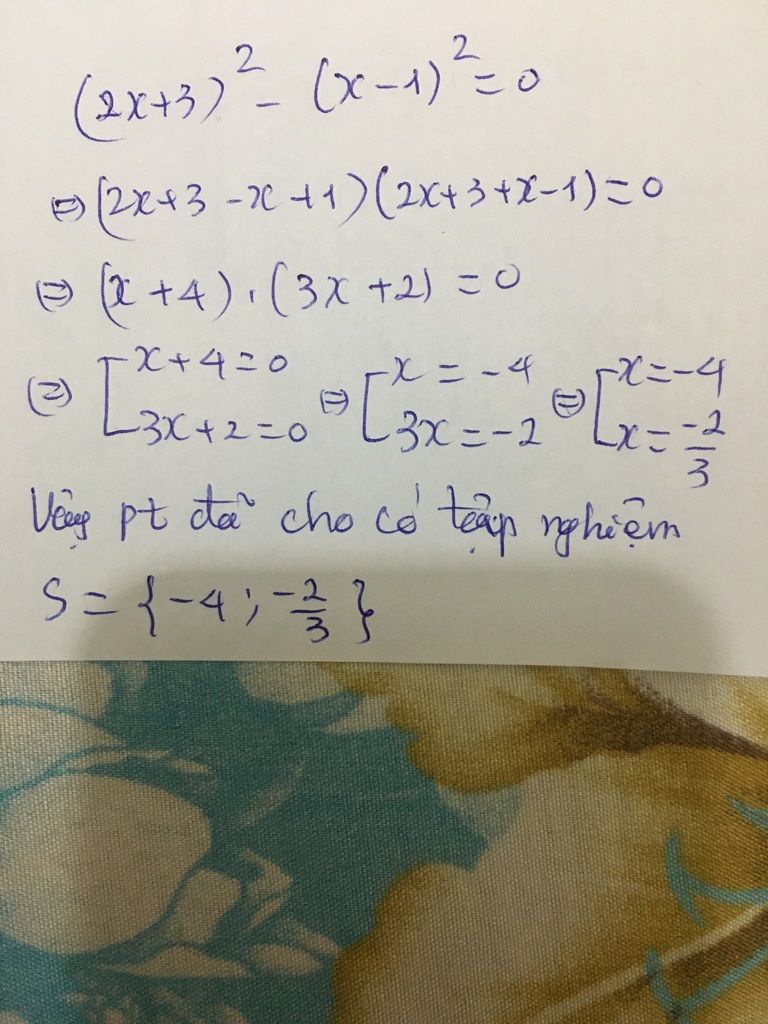 (2x+3)² - (x-1)² = 0
⇔ (2x+3-x+1)(2x+3+x-1) = 0
⇔ (x+4).(3x+2) = 0
⇔ [x+4=0 ; 3x+2=0 ⇔ [x=-4 ; 3x=-2 ⇔ [x=-4 ; x=-2/3
Vậy pt đã cho có tập nghiệm
S = {-4; -2/3}